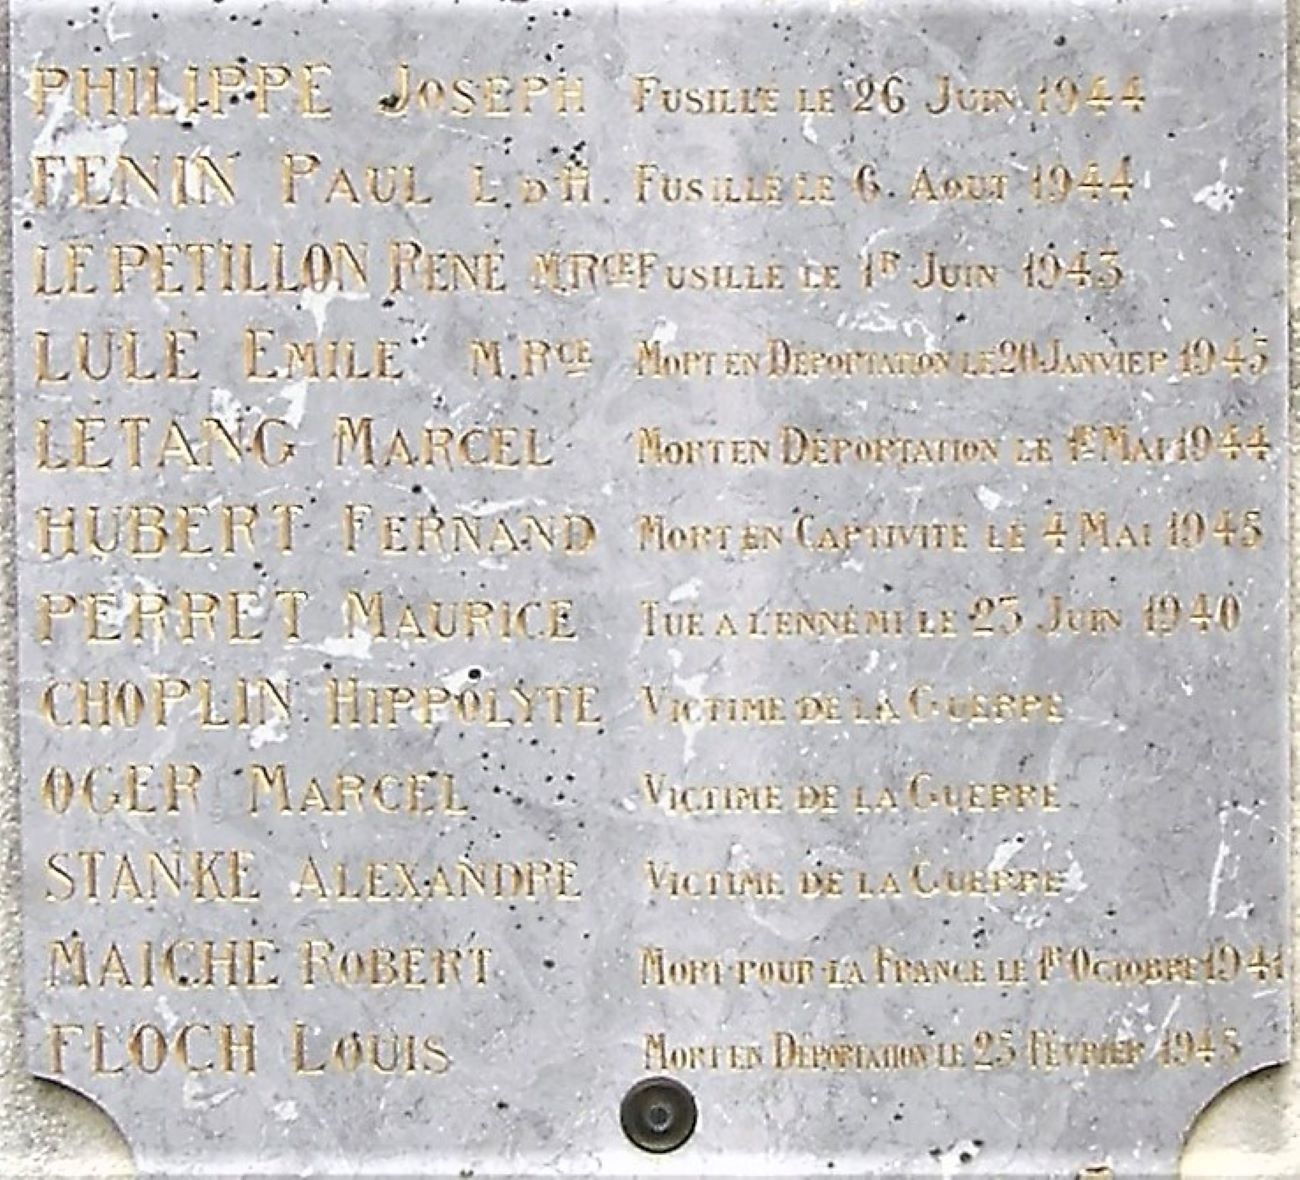 PHILIPPE JOSEPH FUSILLÉ LE 26 JUIN 1944
FENIN PAUL L.D'H. FUSILLE LE 6 AOUT 1944
LE PETILLON RENÉ M.RCE FUSILLE LE 1R JUIN 1943
LULÉ EMILE M.RCE MORT EN DÉPORTATION LE 20 JANVIER 1945
LÉTANG MARCEL MORT EN DÉPORTATION LE 1R MAI 1944
HUBERT FERNAND MORT EN CAPTIVITÉ LE 4 MAI 1945
PERRET MAURICE TUÉ A L'ENNEMI LE 23 JUIN 1940
CHOPLIN HIPPOLYTE VICTIME DE LA GUERRE
OGER MARCEL VICTIME DE LA GUERRE
STANKE ALEXANDRE VICTIME DE LA GUERRE
MAICHE ROBERT MORT POUR LA FRANCE LE 1R OCTOBRE
FLOCH LOUIS MORT EN DÉPORTATION LE 23 FÉVRIER 1945